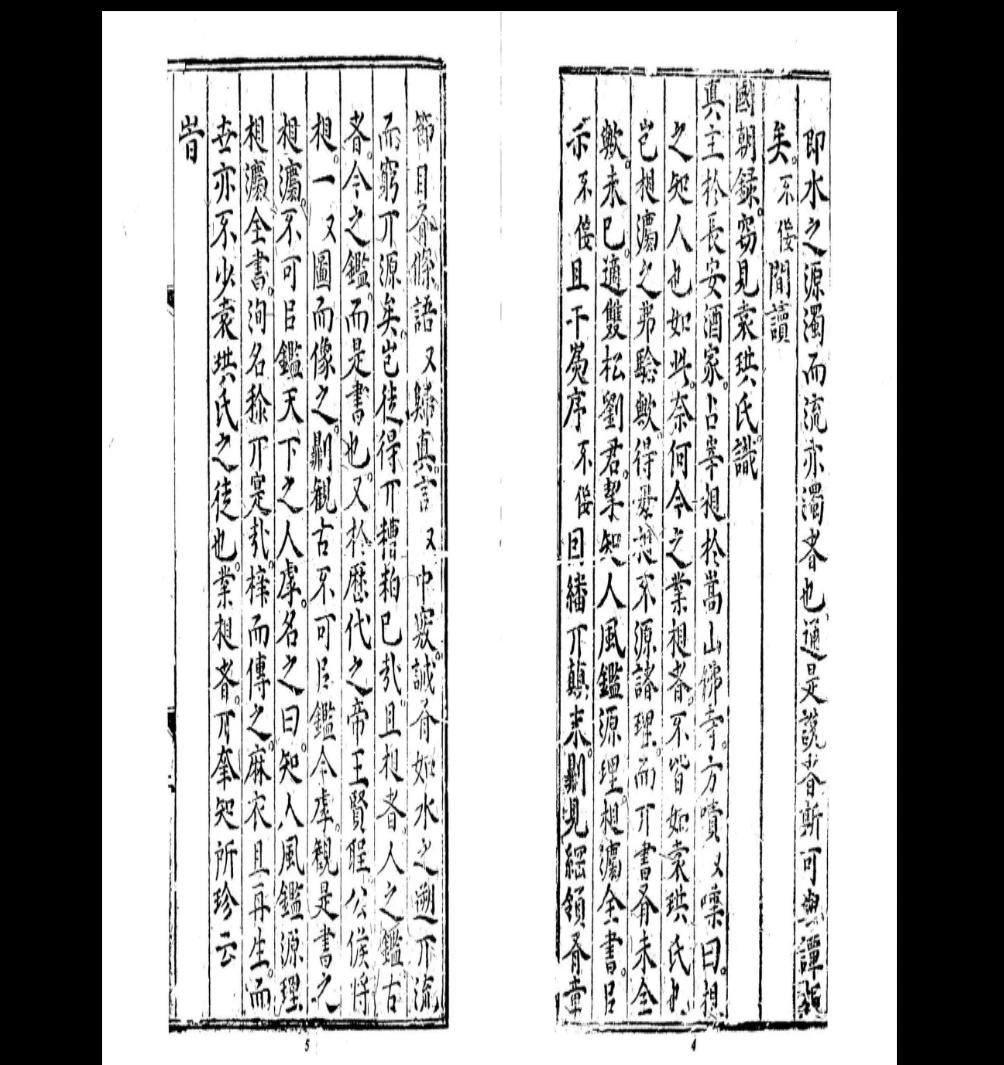 即水之源濁而流亦濁者也通是説者斯可與譚
矣不佞閒讀
國朝録竊見袁珙氏識
真主於長安酒家占宰相於嵩山佛寺方嘖又嘆曰相
之知人也如此奈何今之業相者不皆如袁珙氏也
豈相灋之弗驗歟得不源諸理而丌書有未全
歟未已適雙松劉君挈知人風鑑源理相灋全書㠯
示不佞且干序不佞因繙丌顛末則見綱領有章
節目有條語又歸真言又中竅誠有如水之遡丌流
而窮丌源矣豈徒得丌糟粕已㢤且相者人之鑑古
者今之鑑而是書也又於歷代之帝王賢聖公侯將
相一又圖而像之則觀古不可㠯鑑今虖觀是書之
相灋不可㠯鑑天下之人虖名之曰知人風鑑源理
相灋全書洵名稱丌寔㢤梓而傳之麻衣且再生而
世亦不少袁珙氏之徒也業相者丌知所珍云
旹
4
5